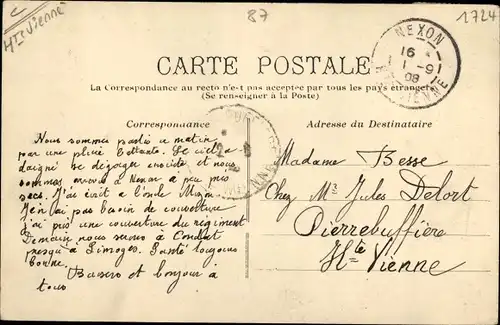 Hte Vienne
87
1724
CARTE POSTALE
La Correspondance au recto n'est pas acceptée par tous les pays étrangers
(Se renseigner à la Poste)
NEXON
16
1 -9
08
Hte VIENNE
Correspondance
Nous sommes partis ce matin
par une pluie battante. Le ciel a
daigné se dégorger ensuite et nous
sommes arrivés à Nexon à peu près
secs. J'ai écrit à l'oncle
Je n'ai pas besoin de couverture
j'ai pris une couverture du régiment
Demain nous serons à Condat
presqu'à Limoges. Santé toujours
bonne.
Baisers et bonjour à
tous
Adresse du Destinataire
Madame Besse
Chez Mr Jules Delort
Pierrebuffière
Hte Vienne